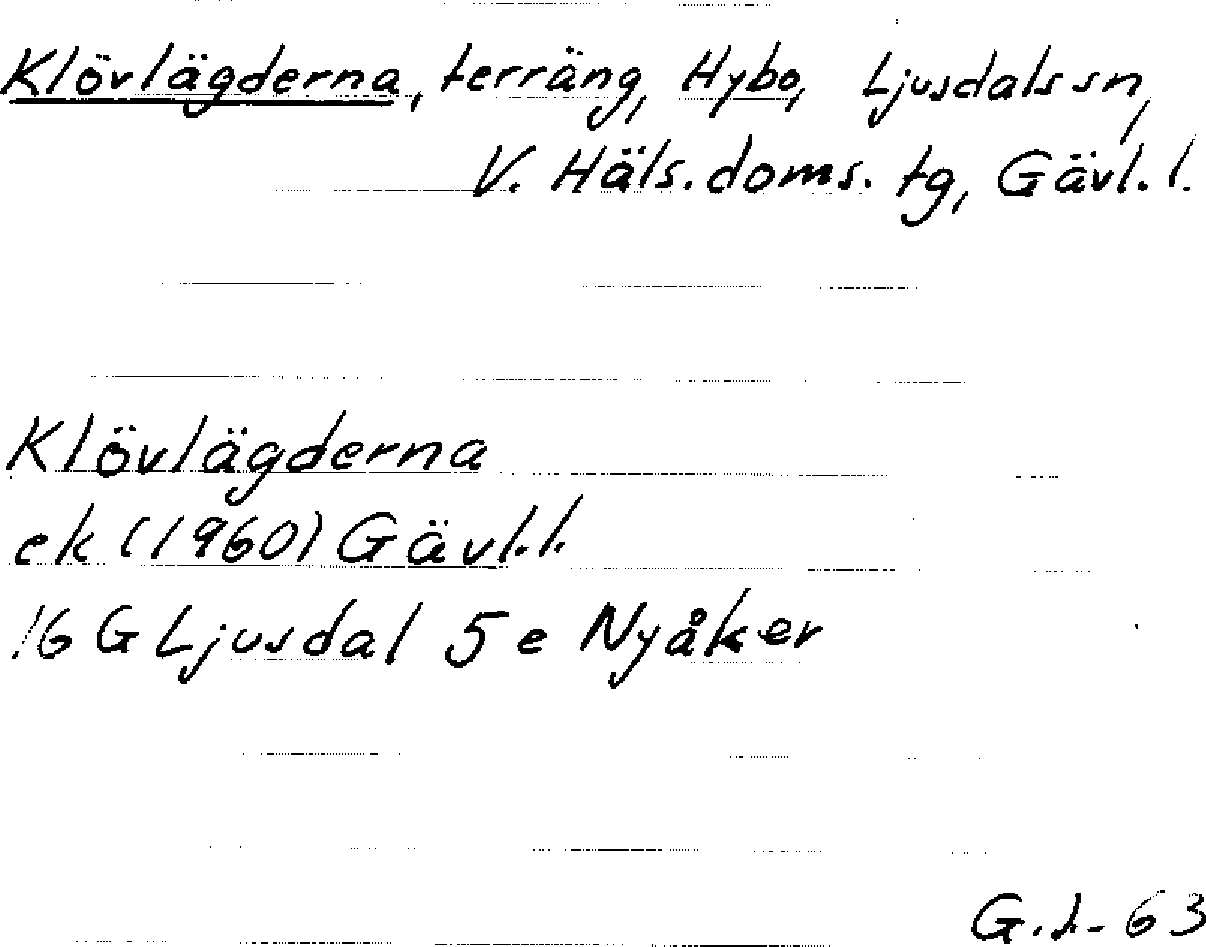 Klövlägderna, terräng, Hybo, Ljusdals sn,
V. Häls. doms. tg, Gävl. l.
Klövlägderna
ek (1960) Gävl. l.
16 G Ljusdal 5 e Nyåker
63